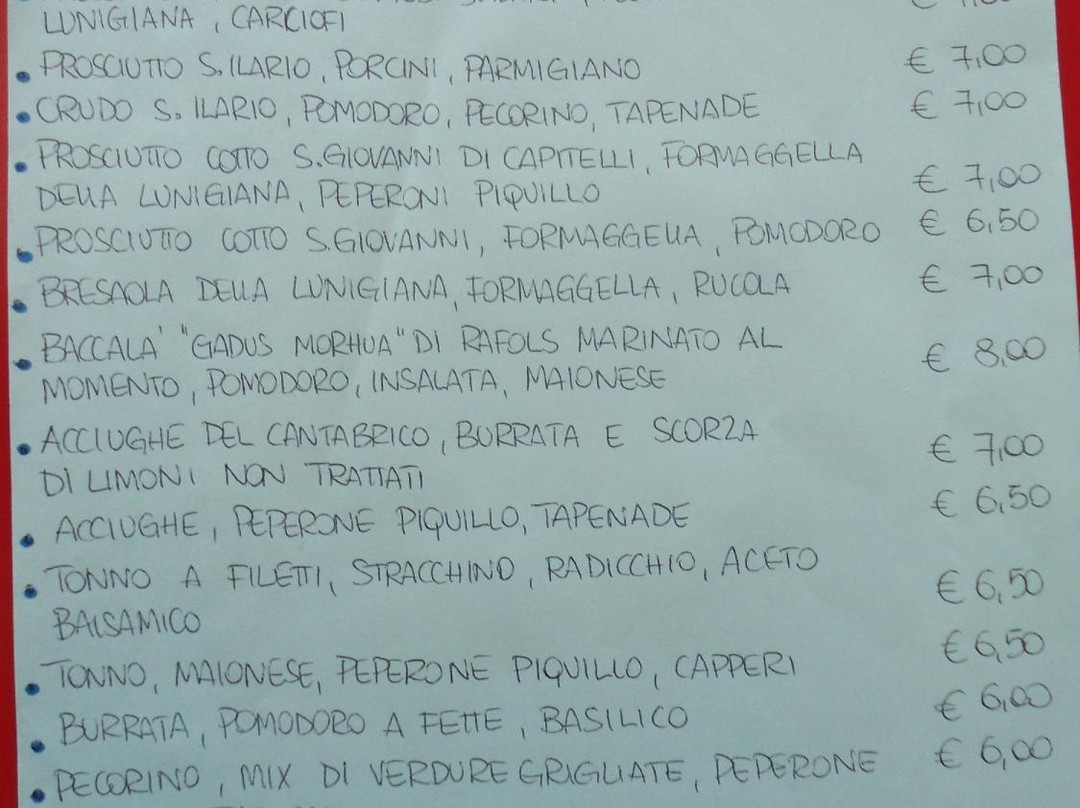 LUNIGIANA, CARCIOFI
• PROSCIUTTO S. ILARIO, PORCINI, PARMIGIANO € 7,00
• CRUDO S. ILARIO, POMODORO, PECORINO, TAPENADE € 7,00
• PROSCIUTTO COTTO S. GIOVANNI DI CAPITELLI, FORMAGGELLA
DELLA LUNIGIANA, PEPERONI PIQUILLO € 7,00
• PROSCIUTTO COTTO S. GIOVANNI, FORMAGGELLA, POMODORO € 6,50
• BRESAOLA DELLA LUNIGIANA, FORMAGGELLA, RUCOLA € 7,00
• BACCALA' "GADUS MORHUA" DI RAFOLS MARINATO AL
MOMENTO, POMODORO, INSALATA, MAIONESE € 8,00
• ACCIUGHE DEL CANTABRICO, BURRATA E SCORZA
DI LIMONI NON TRATTATI € 7,00
• ACCIUGHE, PEPERONE PIQUILLO, TAPENADE € 6,50
• TONNO A FILETTI, STRACCHINO, RADICCHIO, ACETO
BALSAMICO € 6,50
• TONNO, MAIONESE, PEPERONE PIQUILLO, CAPPERI € 6,50
• BURRATA, POMODORO A FETTE, BASILICO € 6,00
• PECORINO, MIX DI VERDURE GRIGLIATE, PEPERONE € 6,00